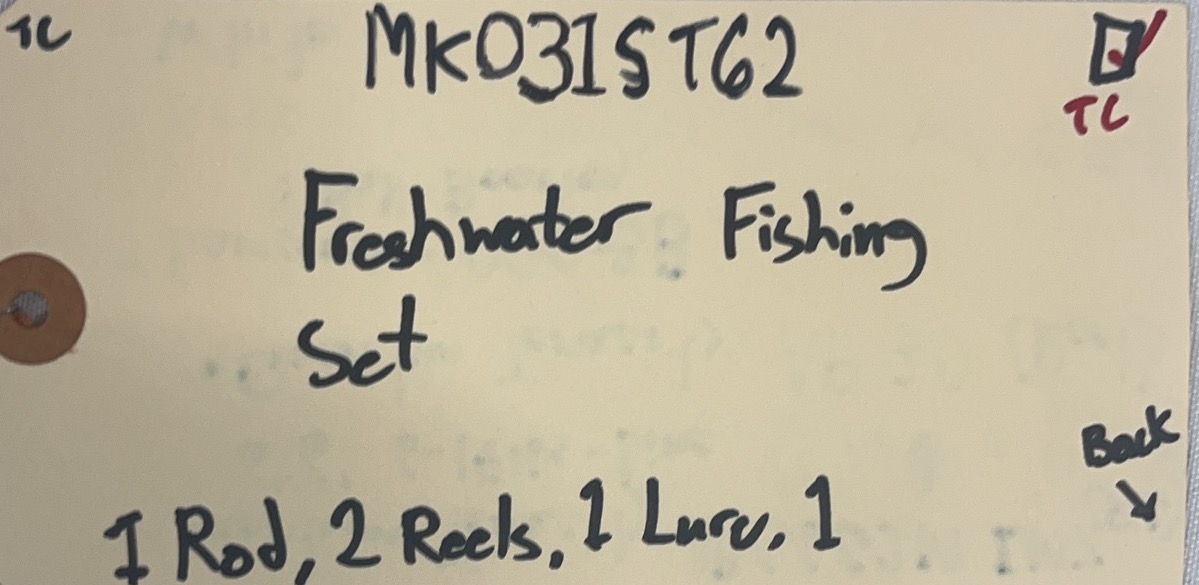 TC
MK03IST62
TC
Freshwater Fishing
Set
Back
1 Rod, 2 Reels, 1 Lure, 1